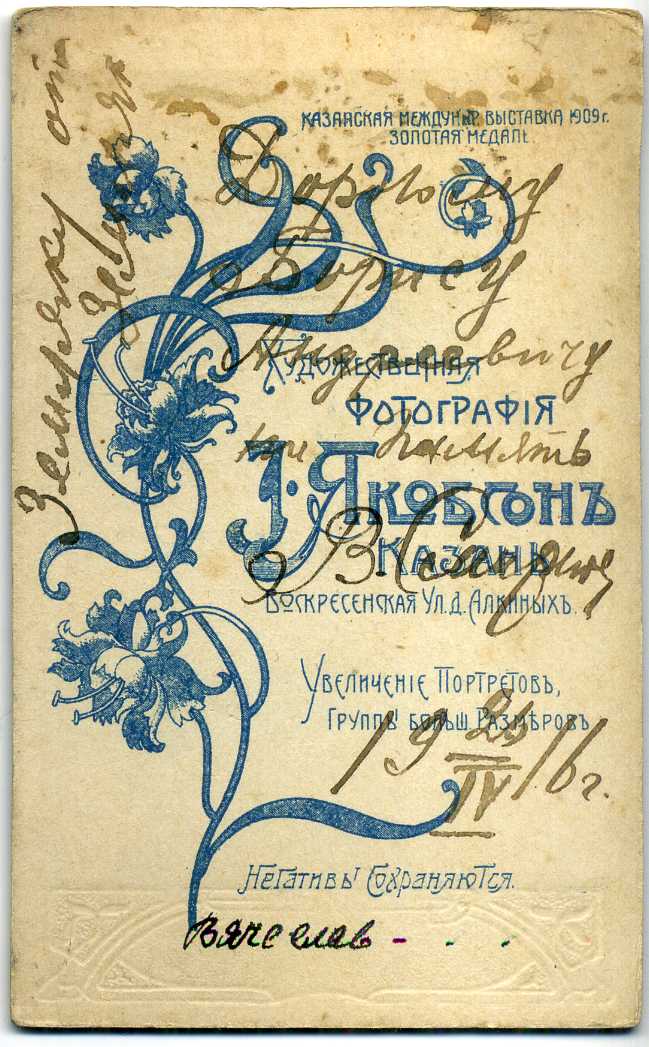 КАЗАНСКАЯ МЕЖДУНАР ВЫСТАВКА 1909 г.
ЗОЛОТАЯ МЕДАЛЬ
Дорогому
Борису
Андреевичу
ХУДОЖЕСТВЕННАЯ
ФОТОГРАФІЯ
на память
І. ЯКОБСОНЪ
В.
КАЗАНЬ
ВОСКРЕСЕНСКАЯ УЛ. Д. АЛКИНЫХЪ.
УВЕЛИЧЕНІЕ ПОРТРЕТОВЪ,
ГРУППЪ БОЛЬШ. РАЗМѢРОВЪ
19 IV 16 г.
НЕГАТИВЫ СОХРАНЯЮТСЯ.
Вячеслав - - - -
Земляку от
земляка